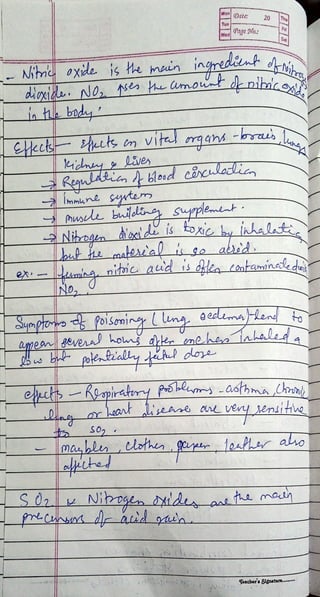 Date: 20
Page No.:
- Nitric oxide is the main ingredient of Nitrogen
dioxide. NO2 the amount of nitric oxide
in the body.
Effects - Effects on vital organs - brain, lungs
Kidney & liver
→ Regulation of blood circulation
→ Immune system
→ Muscle building supplement.
→ Nitrogen dioxide is toxic by inhalation
but the material is so acrid.
ex. - fuming nitric acid is often contaminated
NO2
Symptoms of poisoning (lung oedema) tend to
appear several hours after one has inhaled a
low but potentially fatal dose
effects - Respiratory problems - asthma, chronic
lung or heart disease are very sensitive
to SO2.
- marbles, clothes, paper, leather also
affected
SO2 & Nitrogen oxides are the main
precursors of acid rain.
Teacher's Signature